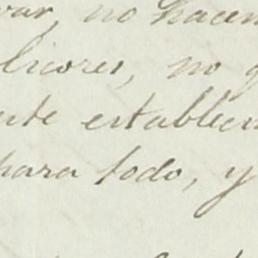 no hacen
licores, no
establecim
para todo, y